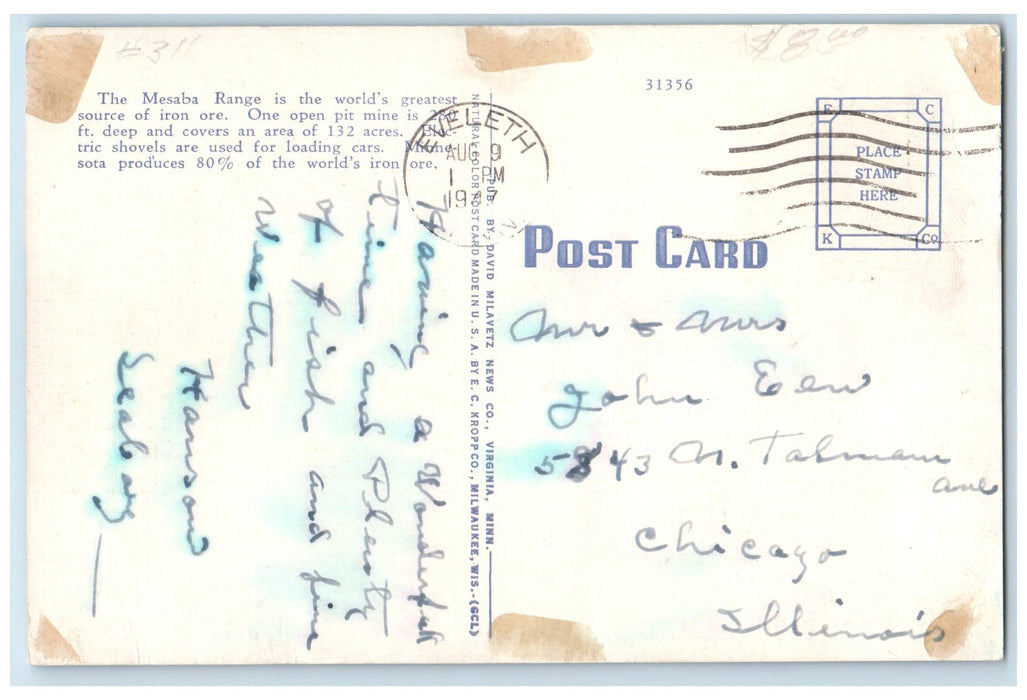 #311
$8.00
The Mesaba Range is the world's greatest
source of iron ore. One open pit mine is
ft. deep and covers an area of 132 acres. Elec-
tric shovels are used for loading cars. Minne-
sota produces 80% of the world's iron ore.
31356
EVELETH
AUG 9
PM
PLACE
STAMP
HERE
E C
K Co
POST CARD
PUB. BY, DAVID MILAVETZ NEWS CO., VIRGINIA, MINN.
NATURAL COLOR POST CARD MADE IN U. S. A. BY E. C. KROPP CO., MILWAUKEE, WIS.-(GCL)
Having a Wonderful
Time and Plenty
of fish and fine
Weather
Mr & Mrs
John
5843 N. Talman
ave
Chicago
Illinois